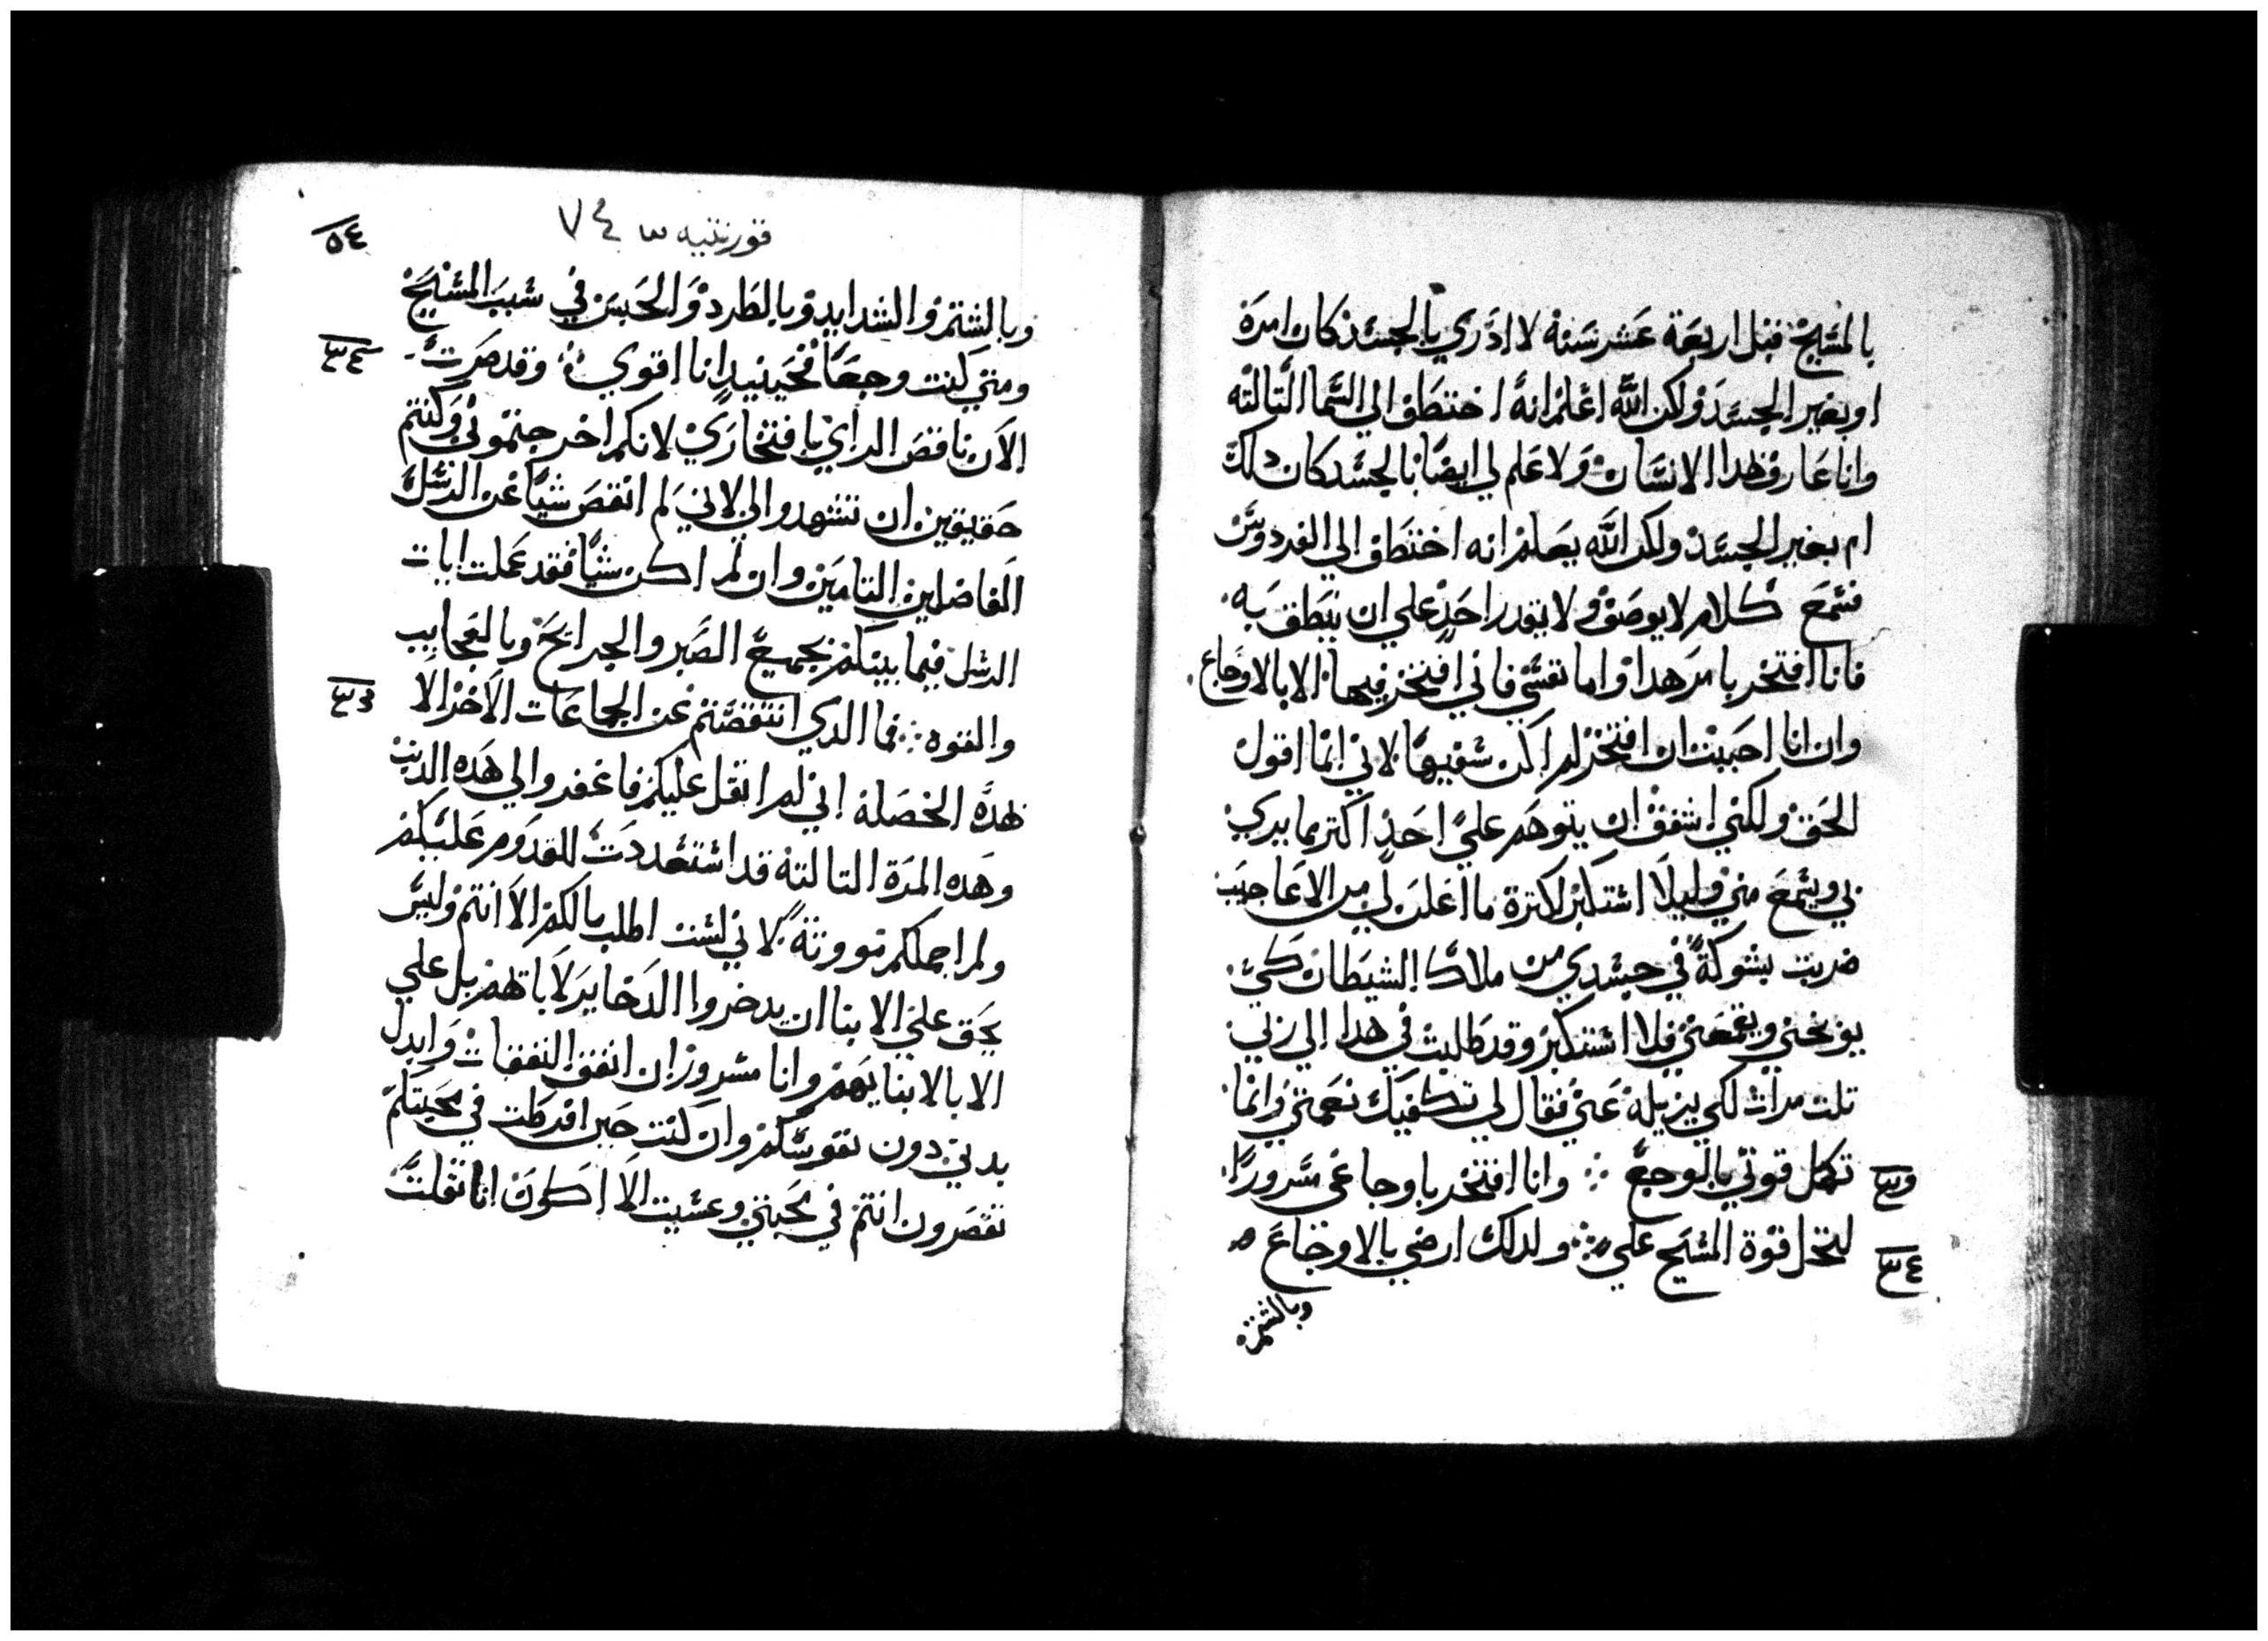 بالمسيح قبل اربعة عشر سنة لا ادري بالجسد كان امره
او بغير الجسد ولكن الله اعلم انه اختطف الي السما التالته
وانا عارف هدا الانسان ولا علم لي ايضا بالجسد كان دلك
ام بغير الجسد ولكن الله يعلم انه اختطف الي الفردوس
فسمع كلام لا يوصف ولا يقدر احد علي ان ينطق به
فانا افتخر بامر هدا واما نفسي فاني افتخر فيها الا بالاوجاع
وان انا احببت ان افتخر لم اكن سفيها لاني انما اقول
الحق ولكني اشفق ان يتوهم علي احد اكتر مما يري
بي ويسمع مني وليلا استكبر لكترة ما اعلن لي من الاعاجيب
ضربت بشوكة في جسدي من ملاك الشيطان كي
يوبخني ويقمعني فلا استكبر وقد طلبت في هدا الي ربي
تلت مرات لكي يزيله عني فقال لي تكفيك نعمتي وانما
تكمل قوتي بالوجع وانا افتخر باوجاعي مسرورا
لتحل قوة المسيح علي ولدلك ارضي بالاوجاع
وبالشتم
قورنتيه ٧٤
٥٤
وبالشتم والشدايد وبالطرد والحبس في سبب المسيح
ومتي كنت وجعا فحينيد انا اقوي وقد صرت
الان ناقص الراي بافتخاري لانكم اخرجتموني وكنتم
حقيقين ان تشهدوا لي لاني لم انقص شيا عن الرسل
الفاضلين التامين وان لم اكن شيا فقد عملت ايات
الرسل فيما بينكم بجميع الصبر والجرايح وبالعجايب
والقوه فما الدي انتقصتم عن الجماعات الاخر الا
بهده الخصلة اني لم اتقل عليكم فاغفروا لي هده الدنب
وهده المرة التالتة قد استعددت للقدوم عليكم
ولم احملكم موونة لاني لست اطلب مالكم الا انتم وليس
يحق علي الابنا ان يدخروا الدخاير لاباتهم بل علي
الابا لابنايهم وانا مسرور ان انفق النفقات وابدل
بدني دون نفوسكم وان كنت حين افرطت في محبتكم
تقصرون انتم في محبتي وعسيت الا اكون انا تقلت